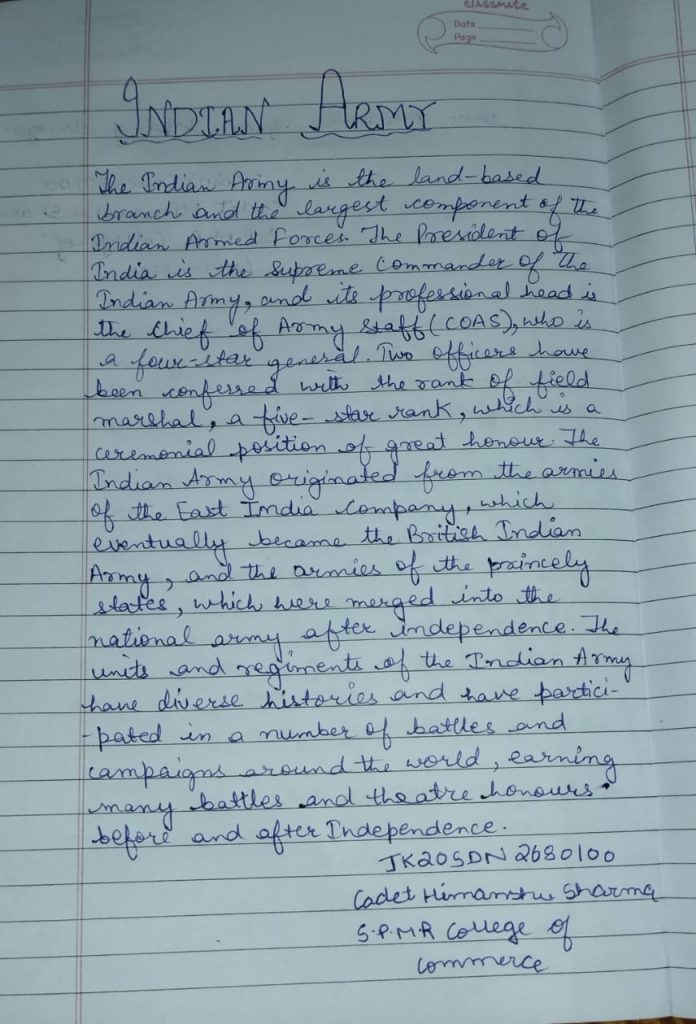 classmate
Date
Page
INDIAN ARMY
The Indian Army is the land-based
branch and the largest component of the
Indian Armed Forces. The President of
India is the Supreme Commander of the
Indian Army, and its professional head is
the Chief of Army Staff (COAS), who is
a four-star general. Two officers have
been conferred with the rank of field
marshal, a five-star rank, which is a
ceremonial position of great honour. The
Indian Army originated from the armies
of the East India Company, which
eventually became the British Indian
Army, and the armies of the princely
states, which were merged into the
national army after independence. The
units and regiments of the Indian Army
have diverse histories and have partici-
-pated in a number of battles and
campaigns around the world, earning
many battles and theatre honours.
before and after Independence.
JK20SDN2680100
Cadet Himanshu Sharma
S.P.M.R College of
Commerce